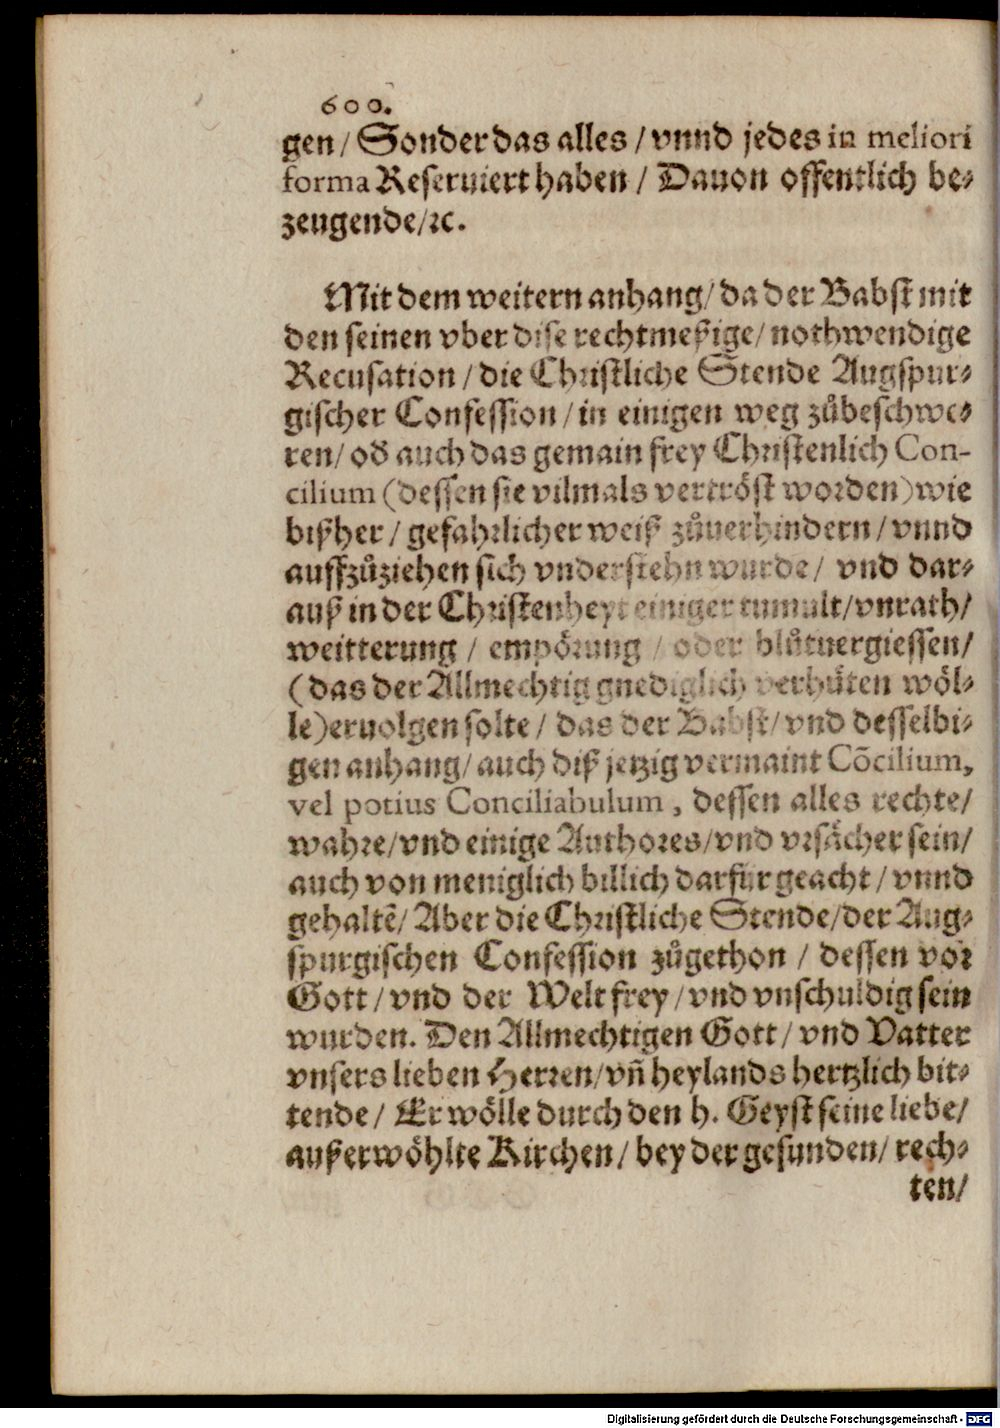 600.
gen/ Sonder das alles / vnnd jedes in meliori
forma Reseruiert haben / Dauon offentlich be⸗
zeugende/ꝛc.
Mit dem weitern anhang/ da der Babst mit
den seinen vber dise rechtmeßige/ nothwendige
Recusation / die Christliche Stende Augspur⸗
gischer Confession / in einigen weg zůbeschwe⸗
ren/ od̕ auch das gemain frey Christenlich Con-
cilium (dessen sie vilmals vertröst worden) wie
bißher / gefahrlicher weiß zůuerhindern / vnnd
auffzůziehen sich vnderstehn wurde/ vnd dar⸗
auß in der Christenheyt einiger tumult/vnrath/
weitterung / empörung / oder blůtuergiessen/
(das der Allmechtig gnediglich verhüten wöl⸗
le) eruolgen solte / das der Babst/ vnd desselbi⸗
gen anhang/ auch diß jetzig vermaint Cõcilium,
vel potius Conciliabulum, dessen alles rechte/
wahre/vnd einige Authores/vnd vrsächer sein/
auch von meniglich billich darfür geacht / vnnd
gehaltẽ/ Aber die Christliche Stende/der Aug⸗
spurgischen Confession zůgethon / dessen vor
Gott / vnd der Welt frey / vnd vnschuldig sein
wurden. Den Allmechtigen Gott/ vnd Vatter
vnsers lieben Herren/vñ heylands hertzlich bit⸗
tende/ Er wölle durch den h. Geyst seine liebe/
außerwöhlte Kirchen/ bey der gesunden/ rech⸗
ten/
Digitalisierung gefördert durch die Deutsche Forschungsgemeinschaft - DFG